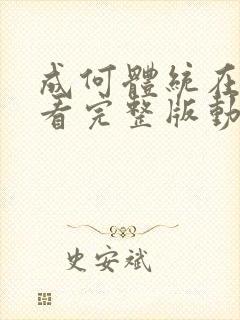 成何體統在
看完整版動
史安斌